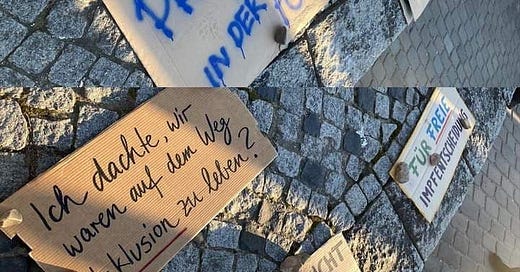 IN DER
Ich dachte, wir
waren auf dem Weg
Inklusion zu leben?
FÜR FREIE
IMPFENTSCHEIDUNG